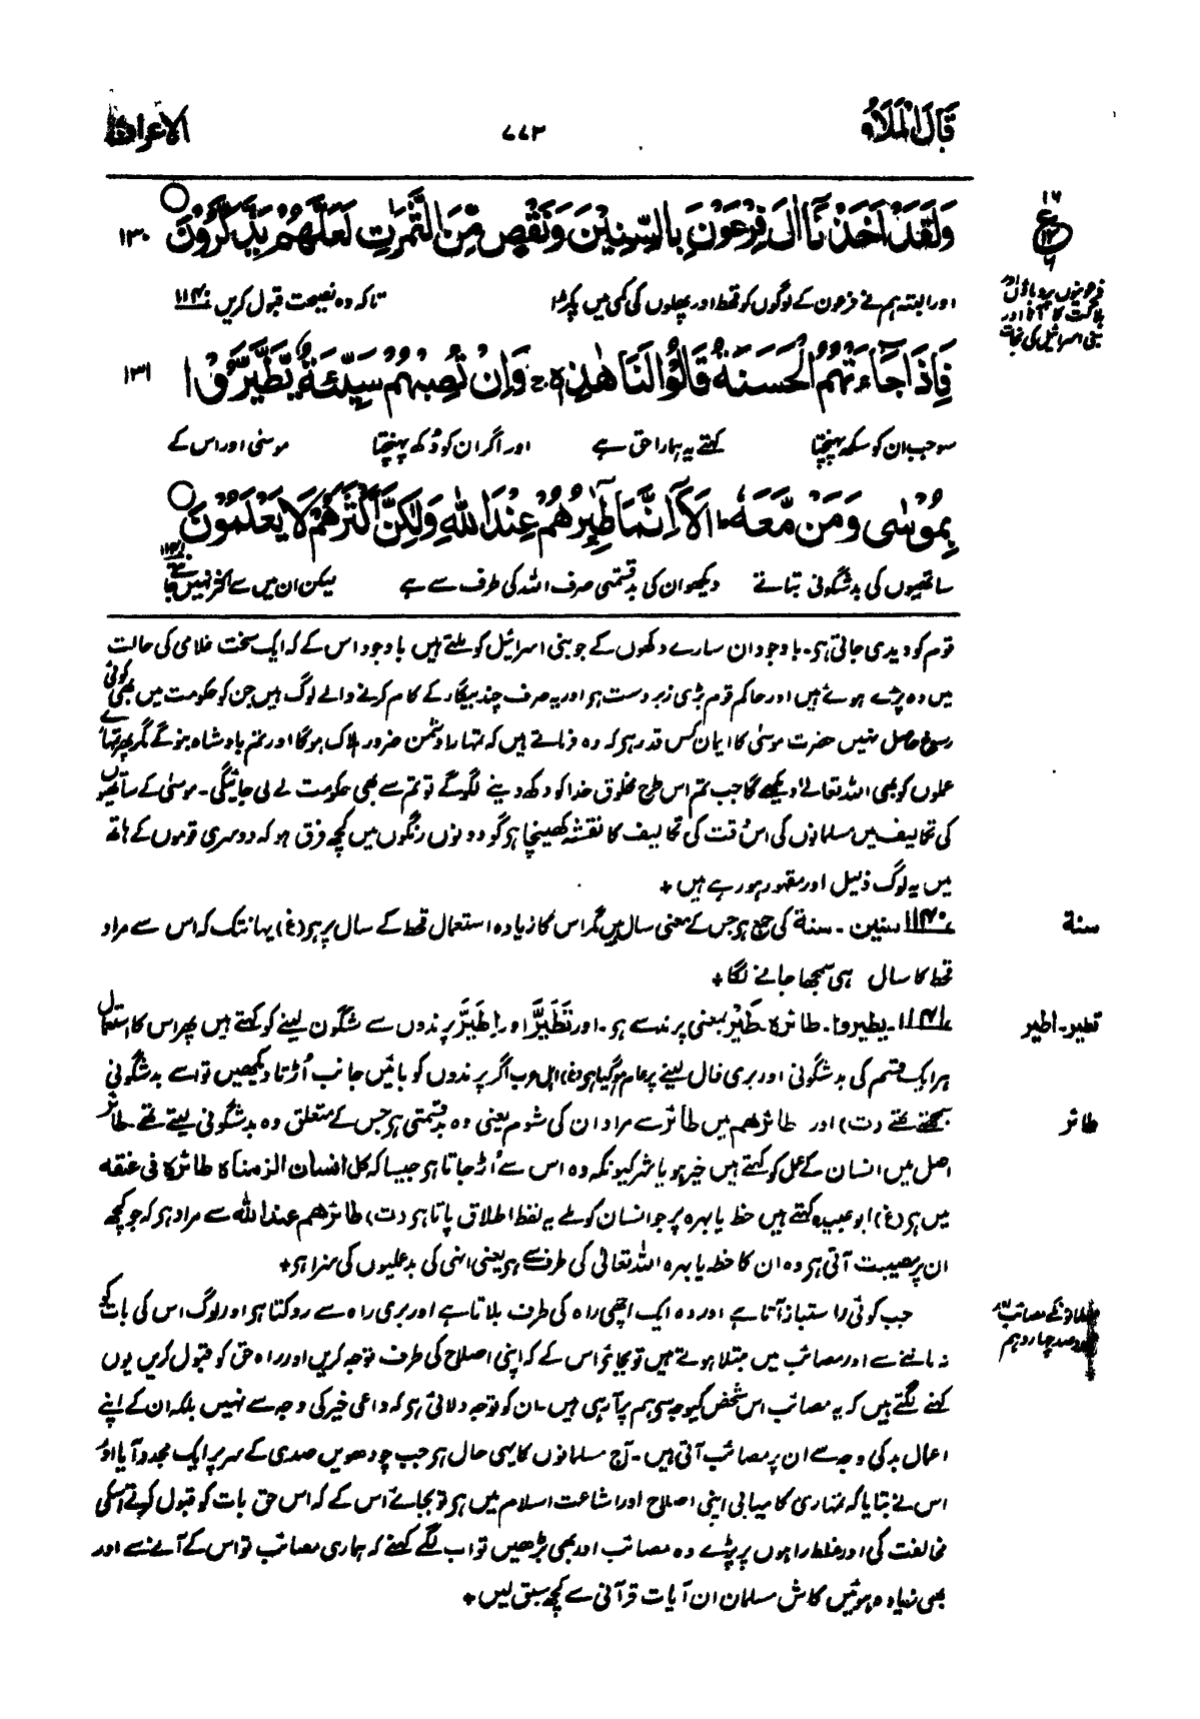 قَالَ الْمَلَأُ
۷۷۳
الاعراف
وَلَقَدْ أَخَذْنَا آلَ فِرْعَوْنَ بِالسِّنِينَ وَنَقْصٍ مِّنَ الثَّمَرَاتِ لَعَلَّهُمْ يَذَّكَّرُونَ ۱۳۰
اور البتہ ہم نے فرعون کے لوگوں کو قحط اور پھلوں کی کمی میں پکڑا تاکہ وہ نصیحت قبول کریں ۱۱۴۰
فرعونیوں پر وباؤں اور
ہلاکت کا آنا اور
بنی اسرائیل کی نجات
فَإِذَا جَاءَتْهُمُ الْحَسَنَةُ قَالُوا لَنَا هٰذِهِ ۚ وَإِنْ تُصِبْهُمْ سَيِّئَةٌ يَطَّيَّرُوا ۱۳۱
سو جب ان کو سکھ پہنچتا کہتے یہ ہمارا حق ہے اور اگر ان کو دُکھ پہنچتا موسیٰ اور اس کے
بِمُوسٰى وَمَنْ مَّعَهٗ ۗ أَلَا إِنَّمَا طٰٓئِرُهُمْ عِنْدَ اللّٰهِ وَلٰكِنَّ أَكْثَرَهُمْ لَا يَعْلَمُونَ
ساتھیوں کی بدشگونی بتاتے دیکھو ان کی بدقسمتی صرف اللہ کی طرف سے ہے لیکن ان میں سے اکثر نہیں جانتے ۱۱۴۱
قوم کو دیدی جاتی ہو۔ باوجود ان سارے دکھوں کے جو بنی اسرائیل کو ملتے ہیں باوجود اس کے کہ ایک سخت غلامی کی حالت
میں وہ پڑے ہوئے ہیں اور حاکم قوم بڑی زبردست ہو اور یہ صرف چند بیگار کے کام کرنے والے لوگ ہیں جن کو حکومت میں بھی کوئی
رسوخ حاصل نہیں حضرت موسیٰ کا ایمان کس قدر ہو کہ وہ فرماتے ہیں کہ تمہارا دشمن ضرور ہلاک ہوگا اور تم بادشاہ بنو گے مگر پھر تمہارے
عملوں کو بھی اللہ تعالےٰ دیکھے گا جب تم اس طرح مخلوق خدا کو دکھ دینے لگو گے تو تم سے بھی حکومت لے لی جائیگی۔ موسیٰ کے ساتھیوں
کی تکالیف میں مسلمانوں کی اس وقت کی تکالیف کا نقشہ کھینچا ہو گو دونوں رنگوں میں کچھ فرق ہو کہ دوسری قوموں کے ہاتھ
میں یہ لوگ ذلیل اور مقہور ہو رہے ہیں ٭
سنة
۱۱۴۰ سنین۔ سنة کی جمع ہو جس کے معنی سال ہیں مگر اس کا زیادہ استعمال قحط کے سال پر ہو (غ) یہانتک کہ اس سے مراد
قحط کا سال ہی سمجھا جانے لگا ٭
تطیر۔ اطیر
۱۱۴۱ یطیروا۔ طائرہ۔ طَیْر بمعنی پرند سے ہو۔ اور تَطَیَّرَ اور اِطَّیَّرَ پرندوں سے شگون لینے کو کہتے ہیں پھر اس کا استعمال
ہر ایک قسم کی بدشگونی اور بری فال لینے پر عام ہو گیا ہو (غ) اہل عرب اگر پرندوں کو بائیں جانب اُڑتا دیکھیں تو اسے بدشگونی
طائر
سمجھتے تھے (ت) اور طائرھم میں طائر سے مراد ان کی شوم یعنی وہ بدقسمتی ہو جس کے متعلق وہ بدشگونی لیتے تھے۔ طائر
اصل میں انسان کے عمل کو کہتے ہیں خیر ہو یا شر کیونکہ وہ اس سے اُڑ جاتا ہو جیسا کہ کل انسان الزمناہ طائرہ فی عنقہ
میں ہو (غ) ابو عبیدہ کہتے ہیں حظ یا بہرہ پر جو انسان کو ملے یہ لفظ اطلاق پاتا ہو (ت) طائرھم عند اللہ سے مراد ہو کہ جو کچھ
ان پر مصیبت آتی ہو وہ ان کا حظ یا بہرہ اللہ تعالیٰ کی طرف سے ہو یعنی انہی کی بدعملیوں کی سزا ہو ٭
مسلمانوں کے مصائب اور
مجدد صد چہاردہم
جب کوئی راستباز آتا ہے اور وہ ایک اچھی راہ کی طرف بلاتا ہے اور بری راہ سے روکتا ہو اور لوگ اس کی بات کو
نہ ماننے سے اور مصائب میں مبتلا ہوتے ہیں تو بجائے اس کے کہ اپنی اصلاح کی طرف توجہ کریں اور راہ حق کو قبول کریں یوں
کہنے لگتے ہیں کہ یہ مصائب اس شخص کیوجہ سے ہی ہم پر آ رہی ہیں۔ ان کو توجہ دلائی ہو کہ داعی خیر کی وجہ سے نہیں بلکہ ان کے اپنے
اعمال بد کی وجہ سے ان پر مصائب آتی ہیں۔ آج مسلمانوں کا یہی حال ہو جب چودھویں صدی کے سر پر ایک مجدد آیا اور
اس نے بتایا کہ تمہاری کامیابی اپنی اصلاح اور اشاعت اسلام میں ہو تو بجائے اس کے کہ اس حق بات کو قبول کرتے اسکی
مخالفت کی اور غلط راہوں پر پڑے وہ مصائب اور بھی بڑھیں تو اب لگے کہنے کہ ہماری مصائب تو اس کے آنے سے اور
بھی زیادہ ہوئیں کاش مسلمان ان آیات قرآنی سے کچھ سبق لیں ٭